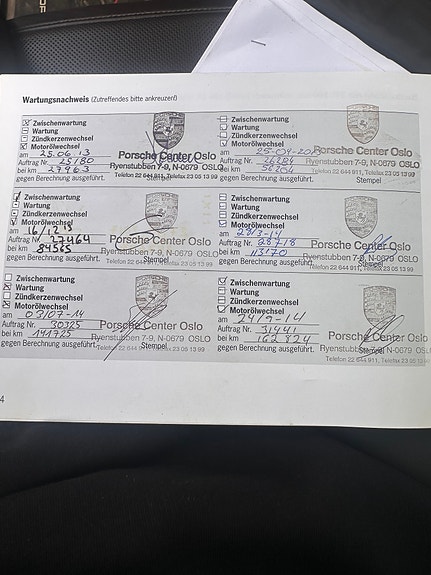 Wartungsnachweis (Zutreffendes bitte ankreuzen!)
Zwischenwartung
Wartung
Zündkerzenwechsel
Motorölwechsel
am 25.06.13
Auftrag Nr. 25180
bei km 27963
gegen Berechnung ausgeführt.
Porsche Center Oslo
Ryenstubben 7-9, N-0679 OSLO
Telefon 22 644 911, Telefax 23 05 13 99
Stempel
Zwischenwartung
Wartung
Zündkerzenwechsel
Motorölwechsel
am
Auftrag Nr. 26284
bei km 56254
gegen Berechnung ausgeführt.
Porsche Center Oslo
Ryenstubben 7-9, N-0679 OSLO
Telefon 22 644 911, Telefax 23 05 13 99
Stempel
Zwischenwartung
Wartung
Zündkerzenwechsel
Motorölwechsel
am 16/12 13
Auftrag Nr. 27464
bei km 84585
gegen Berechnung ausgeführt.
Porsche Center Oslo
Ryenstubben 7-9, N-0679 OSLO
Telefon 22 644 911, Telefax 23 05 13 99
Stempel
Zwischenwartung
Wartung
Zündkerzenwechsel
Motorölwechsel
am 28/3-14
Auftrag Nr. 28718
bei km 113170
gegen Berechnung ausgeführt.
Porsche Center Oslo
Ryenstubben 7-9, N-0679 OSLO
Telefon 22 644 911, Telefax 23 05 13 99
Stempel
Zwischenwartung
Wartung
Zündkerzenwechsel
Motorölwechsel
am 03/07-14
Auftrag Nr. 30325
bei km 141725
gegen Berechnung ausgeführt.
Porsche Center Oslo
Ryenstubben 7-9, N-0679 OSLO
Telefon 22 644 911, Telefax 23 05 13 99
Stempel
Zwischenwartung
Wartung
Zündkerzenwechsel
Motorölwechsel
am 24/9-14
Auftrag Nr. 31441
bei km 162824
gegen Berechnung ausgeführt.
Porsche Center Oslo
Ryenstubben 7-9, N-0679 OSLO
Telefon 22 644 911, Telefax 23 05 13 99
Stempel
4